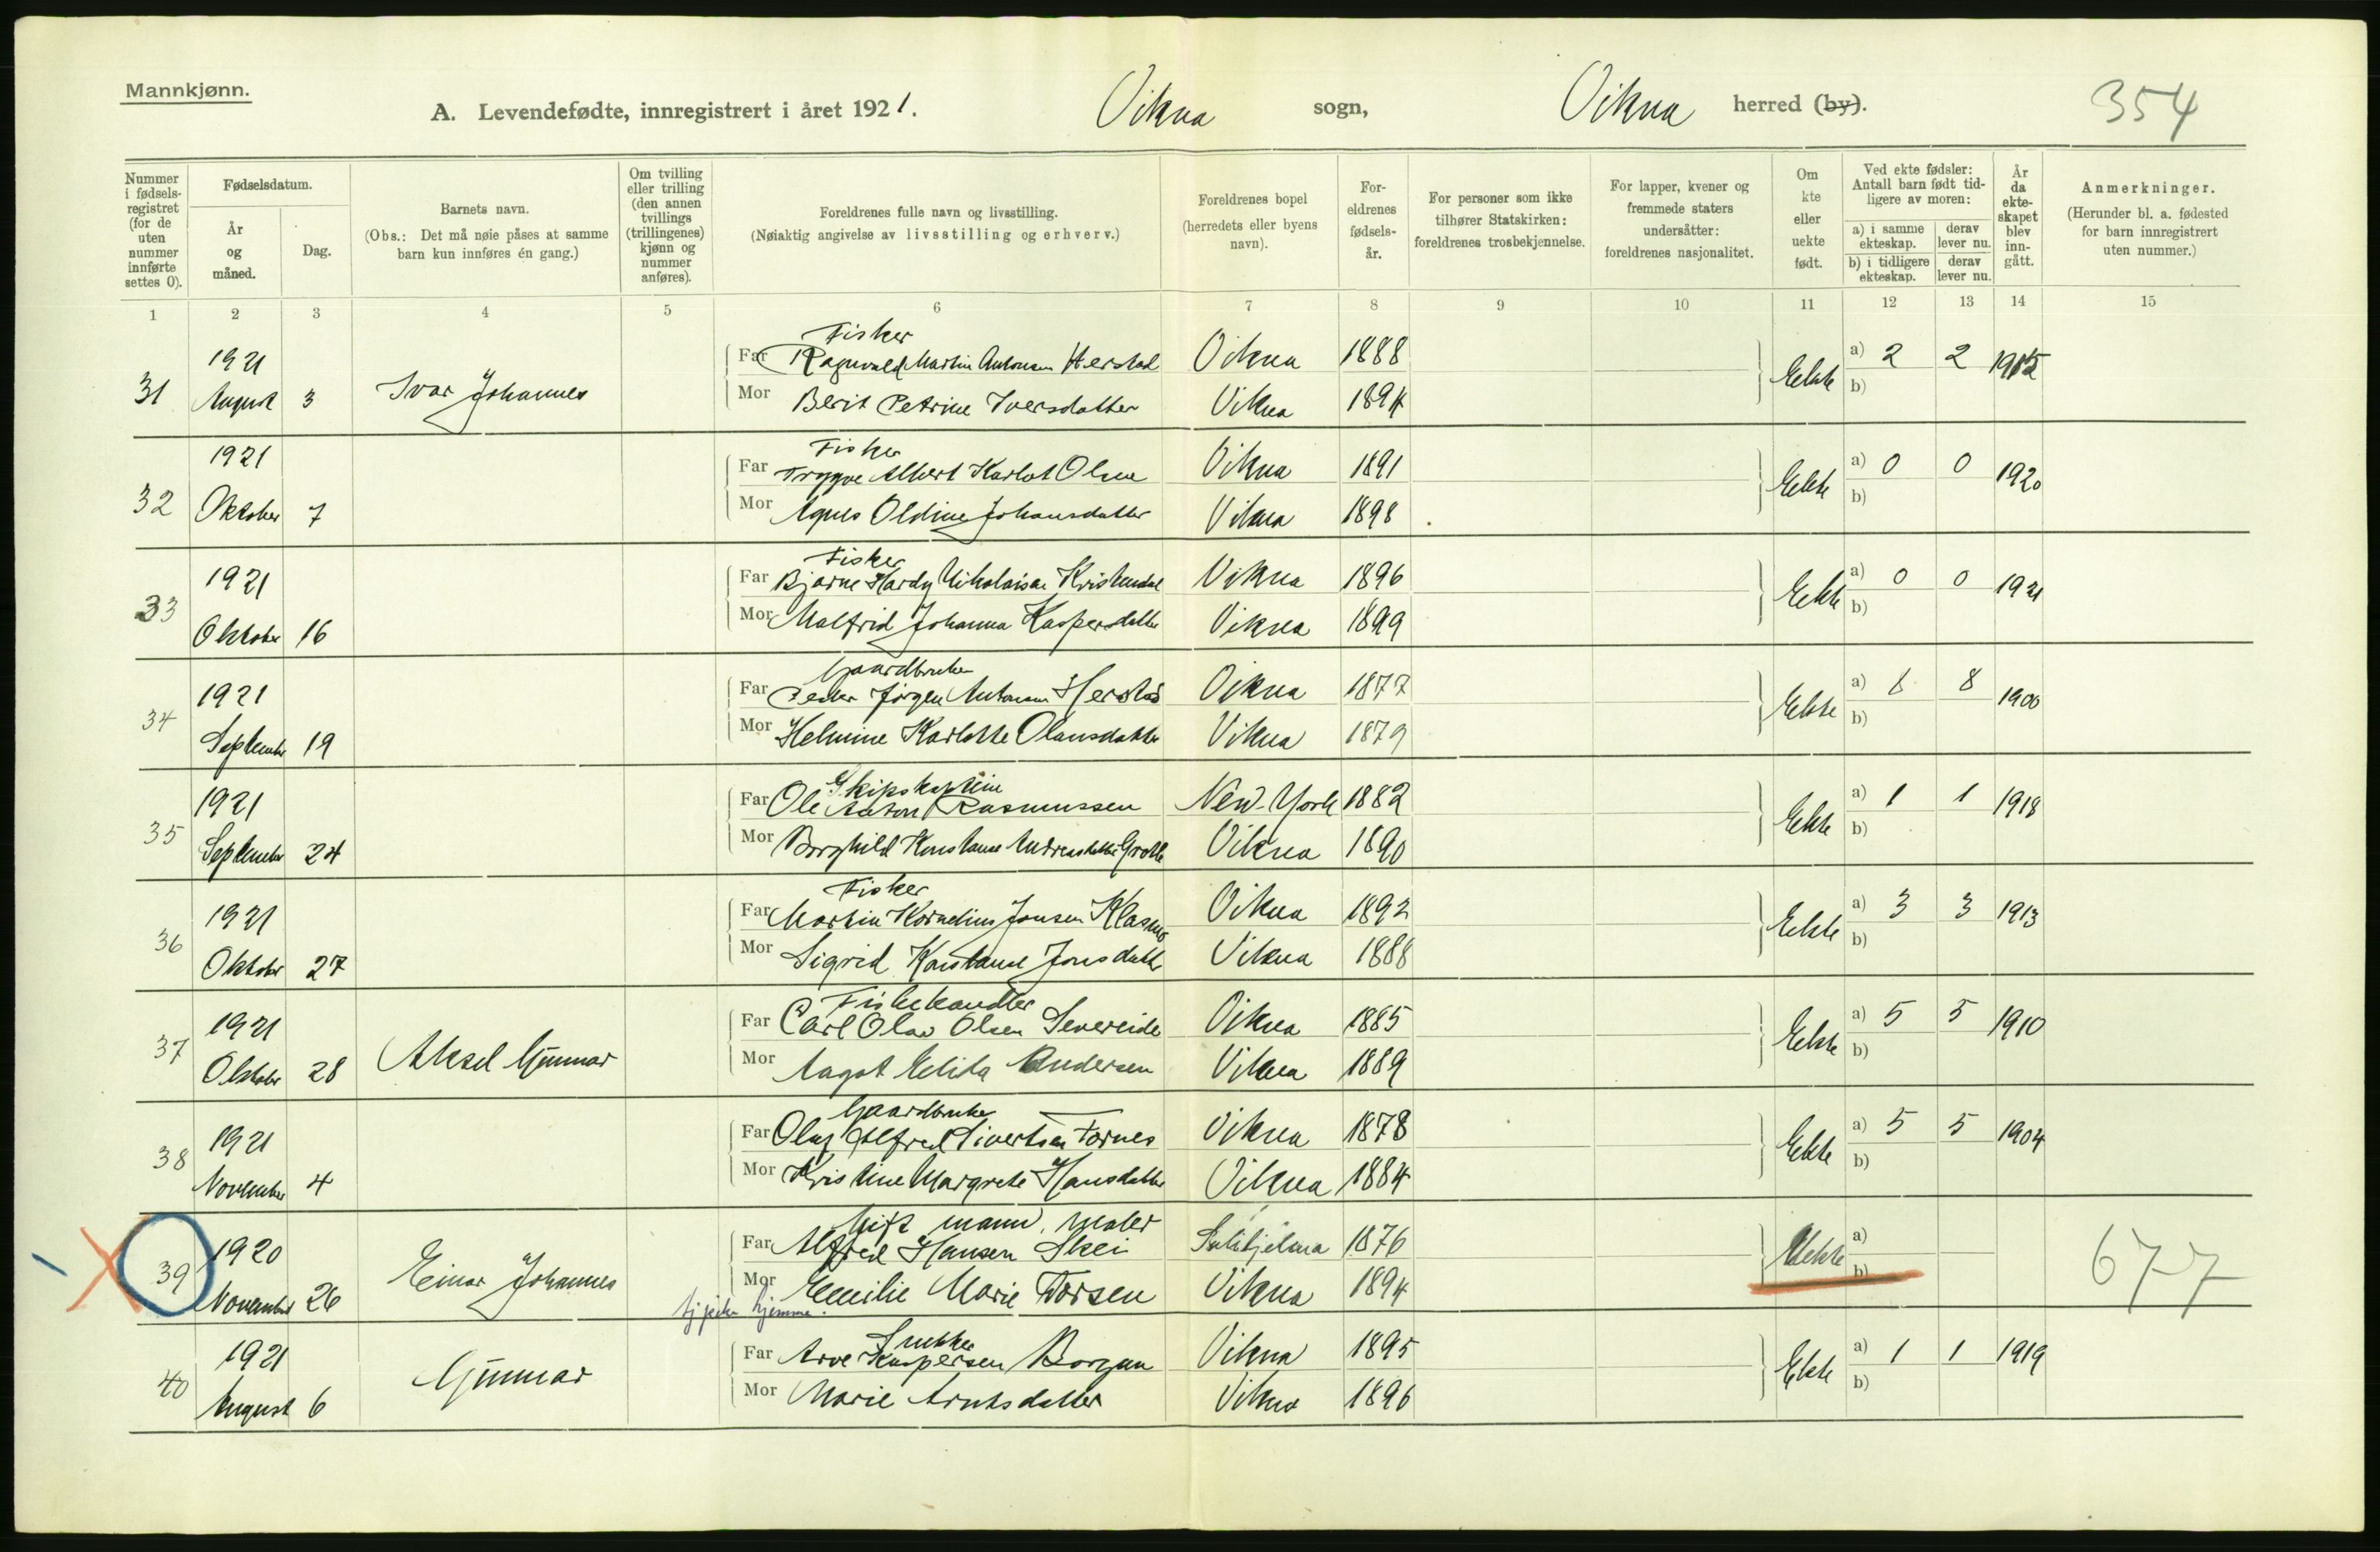 Mannkjønn.
A. Levendefødte, innregistrert i året 1921. Vikna sogn, Vikna herred (by). 354
Nummer i fødsels-registret (for de uten nummer innførte settes 0).
Fødselsdatum.
År og måned.
Dag.
Barnets navn.
(Obs.: Det må nøie påses at samme barn kun innføres én gang.)
Om tvilling eller trilling (den annen tvillings (trillingenes) kjønn og nummer anføres).
Foreldrenes fulle navn og livsstilling.
(Nøiaktig angivelse av livsstilling og erhverv.)
Foreldrenes bopel (herredets eller byens navn).
For-eldrenes fødsels-år.
For personer som ikke tilhører Statskirken: foreldrenes trosbekjennelse.
For lapper, kvener og fremmede staters undersåtter: foreldrenes nasjonalitet.
Om kte eller uekte født.
Ved ekte fødsler: Antall barn født tid-ligere av moren:
a) i samme ekteskap.
b) i tidligere ekteskap.
derav lever nu.
derav lever nu.
År da ekte-skapet blev inn-gått.
Anmerkninger.
(Herunder bl. a. fødested for barn innregistrert uten nummer.)
1 2 3 4 5 6 7 8 9 10 11 12 13 14 15
Fisker
31 1921 August 3 Ivar Johannes Far Ragnvald Martin Antonsen Herstad Vikna 1888 Ekte a) 2 2 1915
Mor Berit Petrine Iversdatter Vikna 1894 b)
Fisker
32 1921 Oktober 7 Far Trygve Albert Karlot Olsen Vikna 1891 Ekte a) 0 0 1920
Mor Agnes Oldine Johansdatter Vikna 1898 b)
Fisker
33 1921 Oktober 16 Far Bjarne Hardy Nikolaisen Vikna 1896 Ekte a) 0 0 1921
Mor Malfrid Johanna Kaspersdatter Vikna 1899 b)
Gaardbruker
34 1921 September 19 Far Peder Jørgen Antonsen Herstad Vikna 1877 Ekte a) 8 1900
Mor Helmine Karlotte Olausdatter Vikna 1879 b)
Skipskaptein
35 1921 September 24 Far Ole Anton Rasmussen New-York 1882 Ekte a) 1 1 1918
Mor Borghild Konstanse Andreasdatter Vikna 1890 b)
Fisker
36 1921 Oktober 27 Far Martin Kornelius Jonsen Vikna 1892 Ekte a) 3 3 1913
Mor Sigrid Konstanse Jonsdatter Vikna 1888 b)
Fiskehandler
37 1921 Oktober 28 Aksel Gunnar Far Carl Olav Olsen Severeide Vikna 1885 Ekte a) 5 5 1910
Mor Aagot Elida Andersen Vikna 1889 b)
Gaardbruker
38 1921 November 4 Far Olaf Alfred Sivertsen Fornes Vikna 1878 Ekte a) 5 5 1904
Mor Kristine Margrete Hansdatter Vikna 1884 b)
Gift mann, maler
39 1920 November 26 Einar Johannes Far Alfred Hansen Skei Sulitjelma 1876 Uekte a) 677
Mor Emilie Marie Torsen Vikna 1894 b)
hjemme.
Snekker
40 1921 August 6 Gunnar Far Arve Kaspersen Borgan Vikna 1895 Ekte a) 1 1 1919
Mor Marie Arntsdatter Vikna 1896 b)